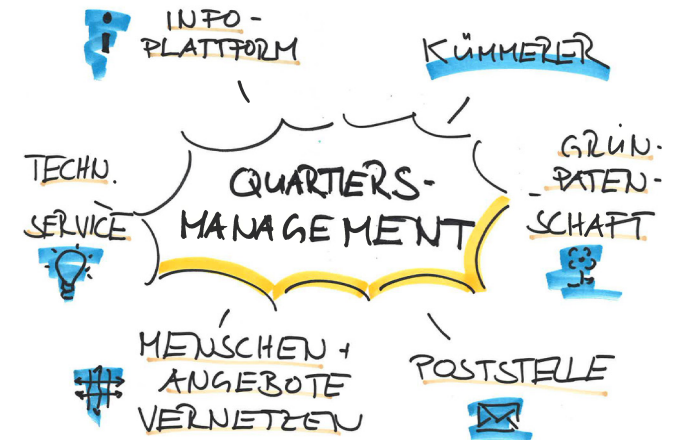 INFO-
PLATTFORM
KÜMMERER
TECHN.
SERVICE
QUARTIERS-
MANAGEMENT
GRÜN-
PATEN-
SCHAFT
MENSCHEN +
ANGEBOTE
VERNETZEN
POSTSTELLE